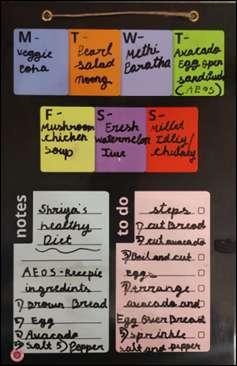 M-
Veggie
Poha
T-
Pearl
salad
moong
W-
Methi
Paratha
T-
Avacado
Egg open
sandwich
(AEOS)
F-
Mushroom
chicken
soup
S-
Fresh
watermelon
Juice
S-
Millet
Idly/
chutney
notes
Shriya's
healthy
Diet
AEOS-Recepie
ingredients
1) brown Bread
2) Egg
3) Avacado
4) Salt 5) Pepper
to do
steps
1) cut bread
2) cut avacado
3) Boil and cut
eggs
4) Arrange
avacado and
Egg over Bread
5) Sprinkle
salt and pepper